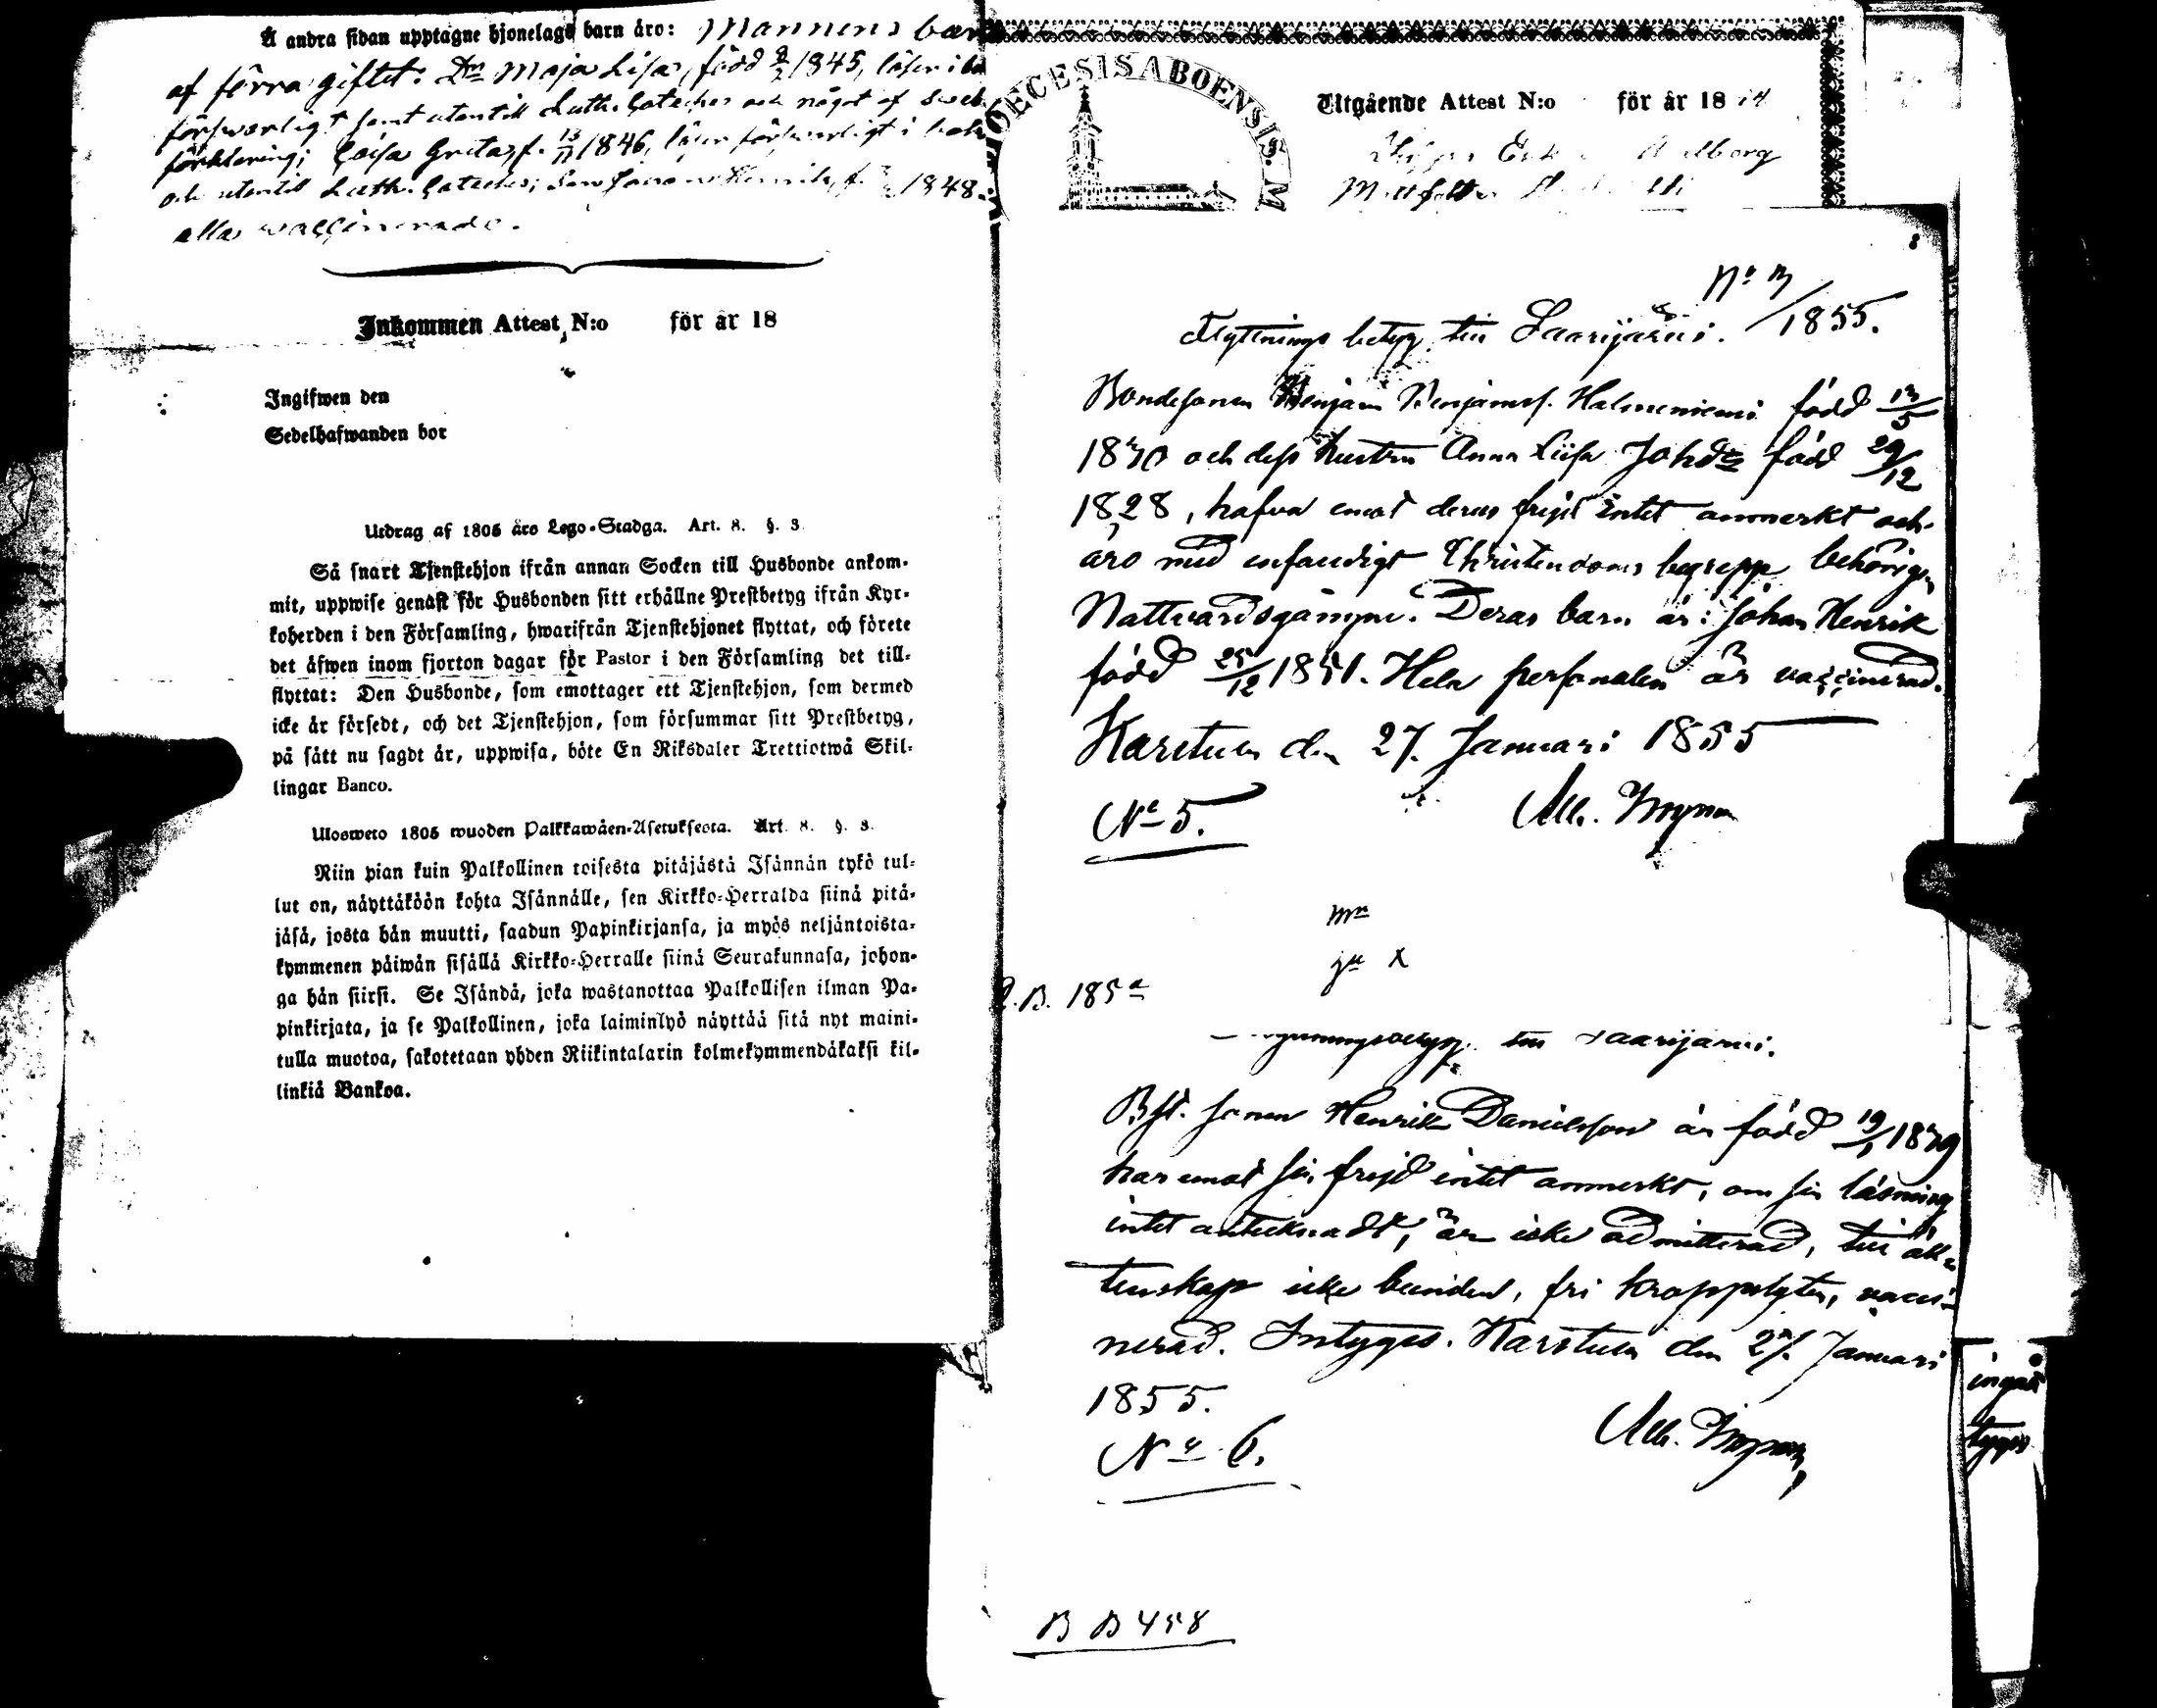 Å andra sidan upptagne hjonelags barn äro: Mannens barn
af förra giftet: Dr Maja Lisa, född 9/2 1845, läser i bo
försvarligt samt utantill Luth. Cateches och något af Sveb.
förklaring; Caisa Greta, f. 13/11 1846, läser försvarligt i bok
och utantill Luth. Cateches; Son Johan Henrik, f. 1848.
alla vaccinerade.
Inkommen Attest N:o för år 18
Ingifwen den
Sedelhafwanden bor
Utdrag af 1805 års Lego-Stadga. Art. 8. §. 3.
Så snart Tjenstehjon ifrån annan Socken till Husbonde ankom-
mit, uppwise genast för Husbonden sitt erhållne Prestbetyg ifrån Kyr-
koherden i den Församling, hwarifrån Tjenstehjonet flyttat, och förete
det äfwen inom fjorton dagar för Pastor i den Församling det till-
flyttat: Den Husbonde, som emottager ett Tjenstehjon, som dermed
icke är försedt, och det Tjenstehjon, som försummar sitt Prestbetyg,
på sätt nu sagdt är, uppwisa, böte En Riksdaler Trettiotwå Skil-
lingar Banco.
Ulosweto 1805 wuoden Palkkawäen-Asetuksesta. Art. 8. §. 3.
Niin pian kuin Palkollinen toisesta pitäjästä Isännän tykö tul-
lut on, näyttäköön kohta Isännälle, sen Kirkko-Herralda siinä pitä-
jäsä, josta hän muutti, saadun Papinkirjansa, ja myös neljäntoista-
kymmenen päiwän sisällä Kirkko-Herralle siinä Seurakunnasa, johon-
ga hän siirsi. Se Isändä, joka wastanottaa Palkollisen ilman Pa-
pinkirjata, ja se Palkollinen, joka laiminlyö näyttää sitä nyt maini-
tulla muotoa, sakotetaan yhden Riikintalarin kolmekymmendäkaksi kil-
linkiä Bankoa.
DIOECESIS ABOENSIS. M
Utgående Attest N:o för år 18
No 3/1855.
Flyttnings betyg till Saarijärvi.
Bondesonen Benjam Benjamsf. Halmeniemi född 13/5
1830 och dess hustru Anna Lisa Johdr född 29/12
1828, hafva emot deras frejd intet anmerkt och
äro med enfaldigt Christendoms begrepp behörige
Nattvardsgångne. Deras barn är: Johan Henrik
född 25/12 1851. Hela personalen är vaccinerad.
Karstula den 27. Januari 1855
No 5.
B. 185
till Saarijärvi.
Bst. sonen Henrik Danielsson är född 19/1 1839
har emot sin frejd intet anmerkt, om sin läsning
intet antecknadt, är icke admitterad, till äk-
tenskap icke bunden, fri kroppslyten, vacci-
nerad. Intygas. Karstula den 27. Januari
1855.
No 6.
B B 458